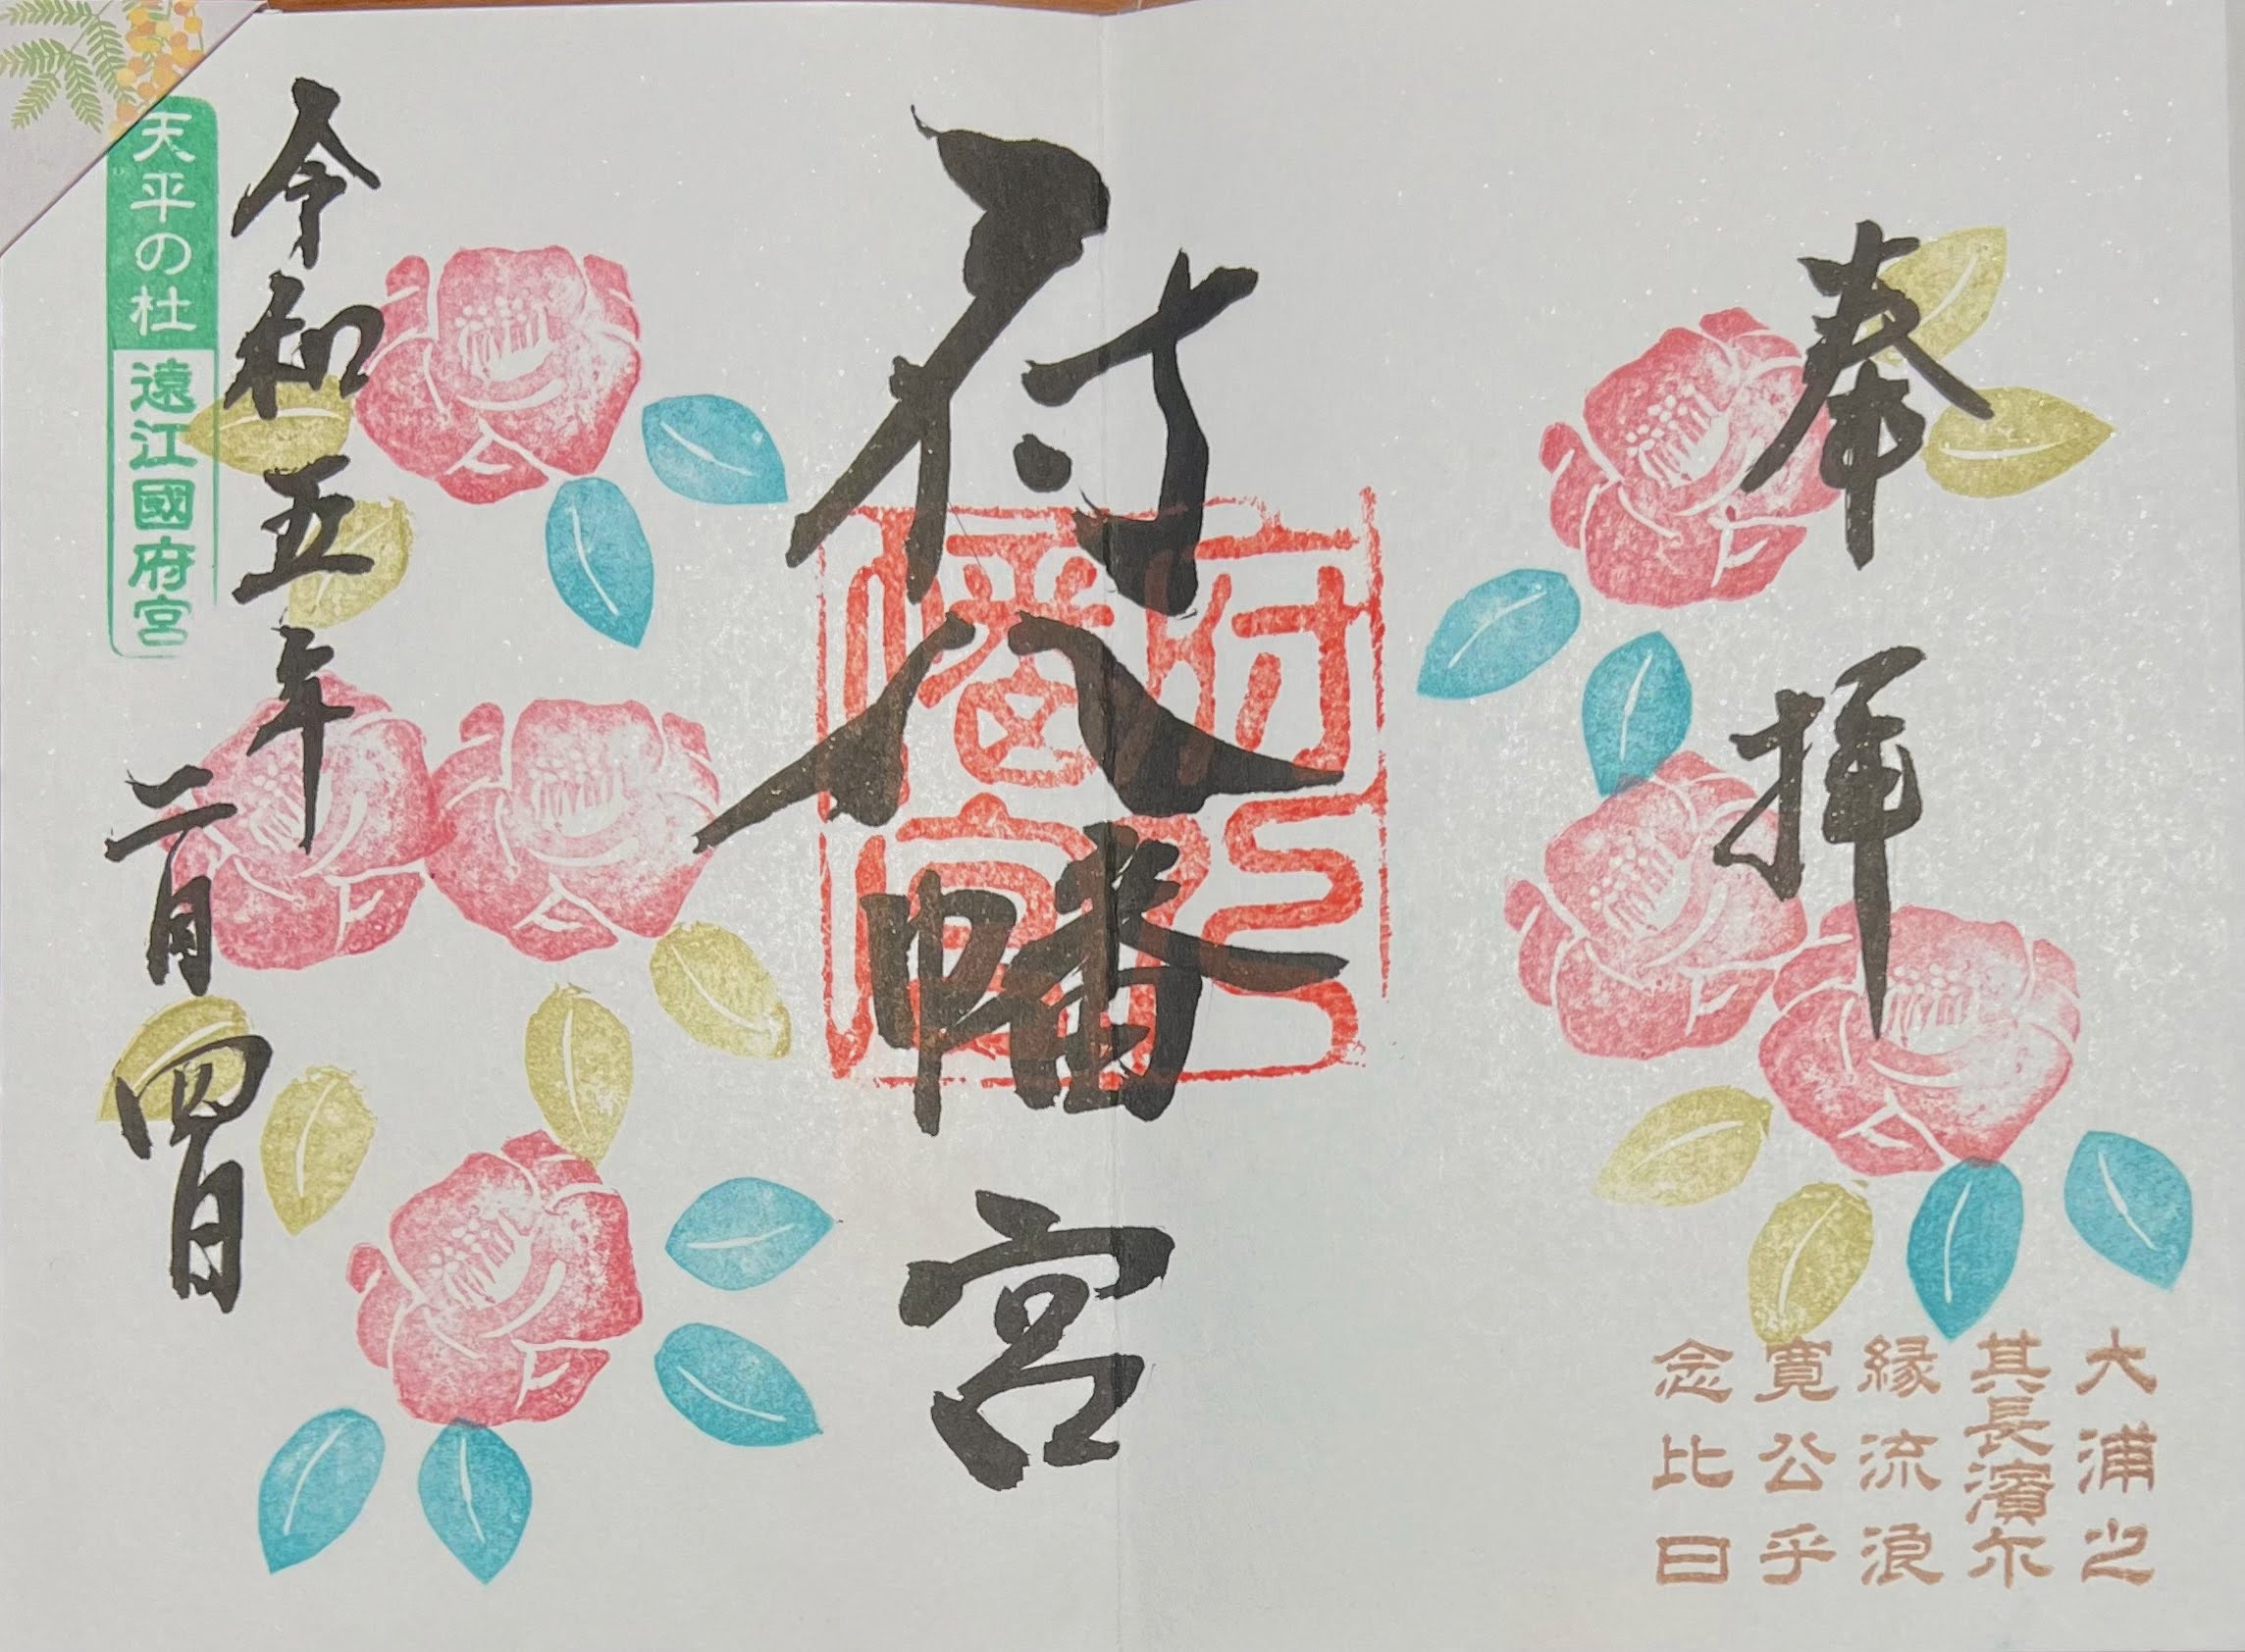 奉拝
大浦之
其長濱尓
縁流浪
寛公乎
念比日
府八幡宮
府八
幡宮
令和五年
二月四日
天平の杜 遠江國府宮